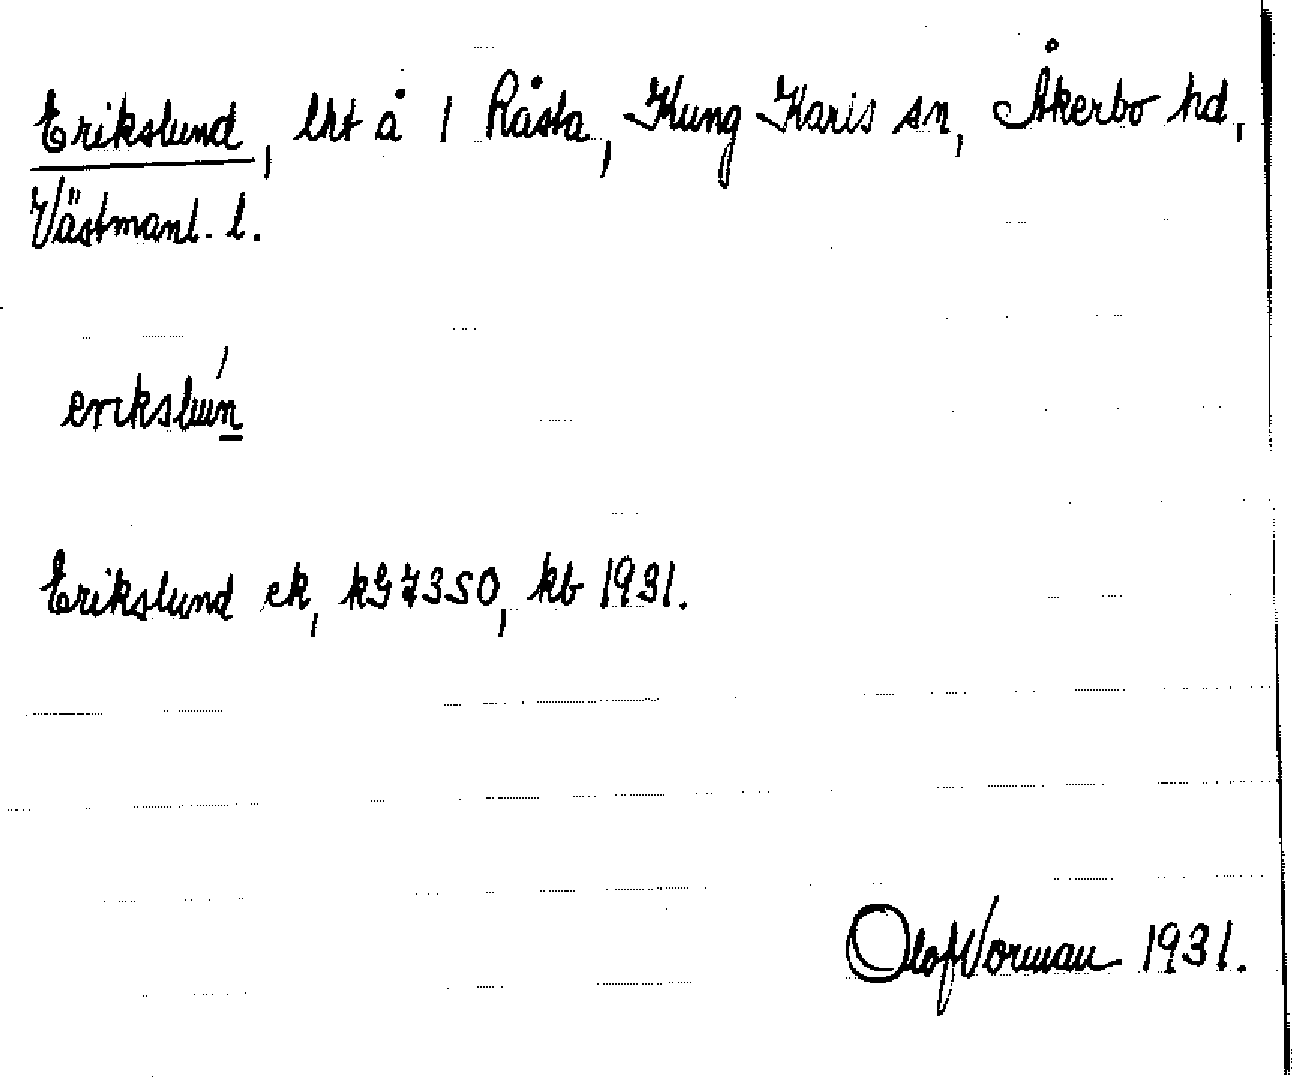 Erikslund, lht å 1 Råsta, Kung Karls sn, Åkerbo hd,
Västmanl. l.
Erikslund ek, kG7350, kb 1931.
Olof Vorman 1931.